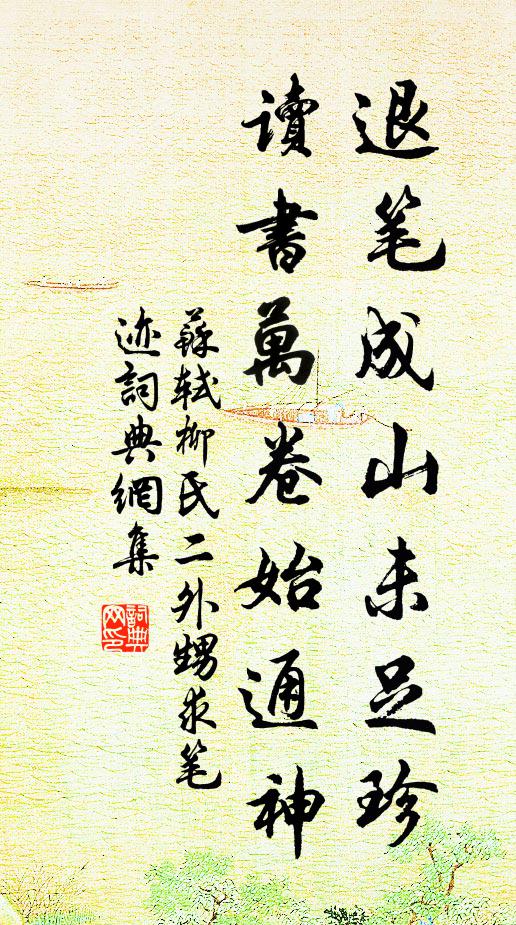 退笔成山未足珍
讀書萬卷始通神
蘇軾柳氏二外甥求笔
迹詞典網集
詞典网印